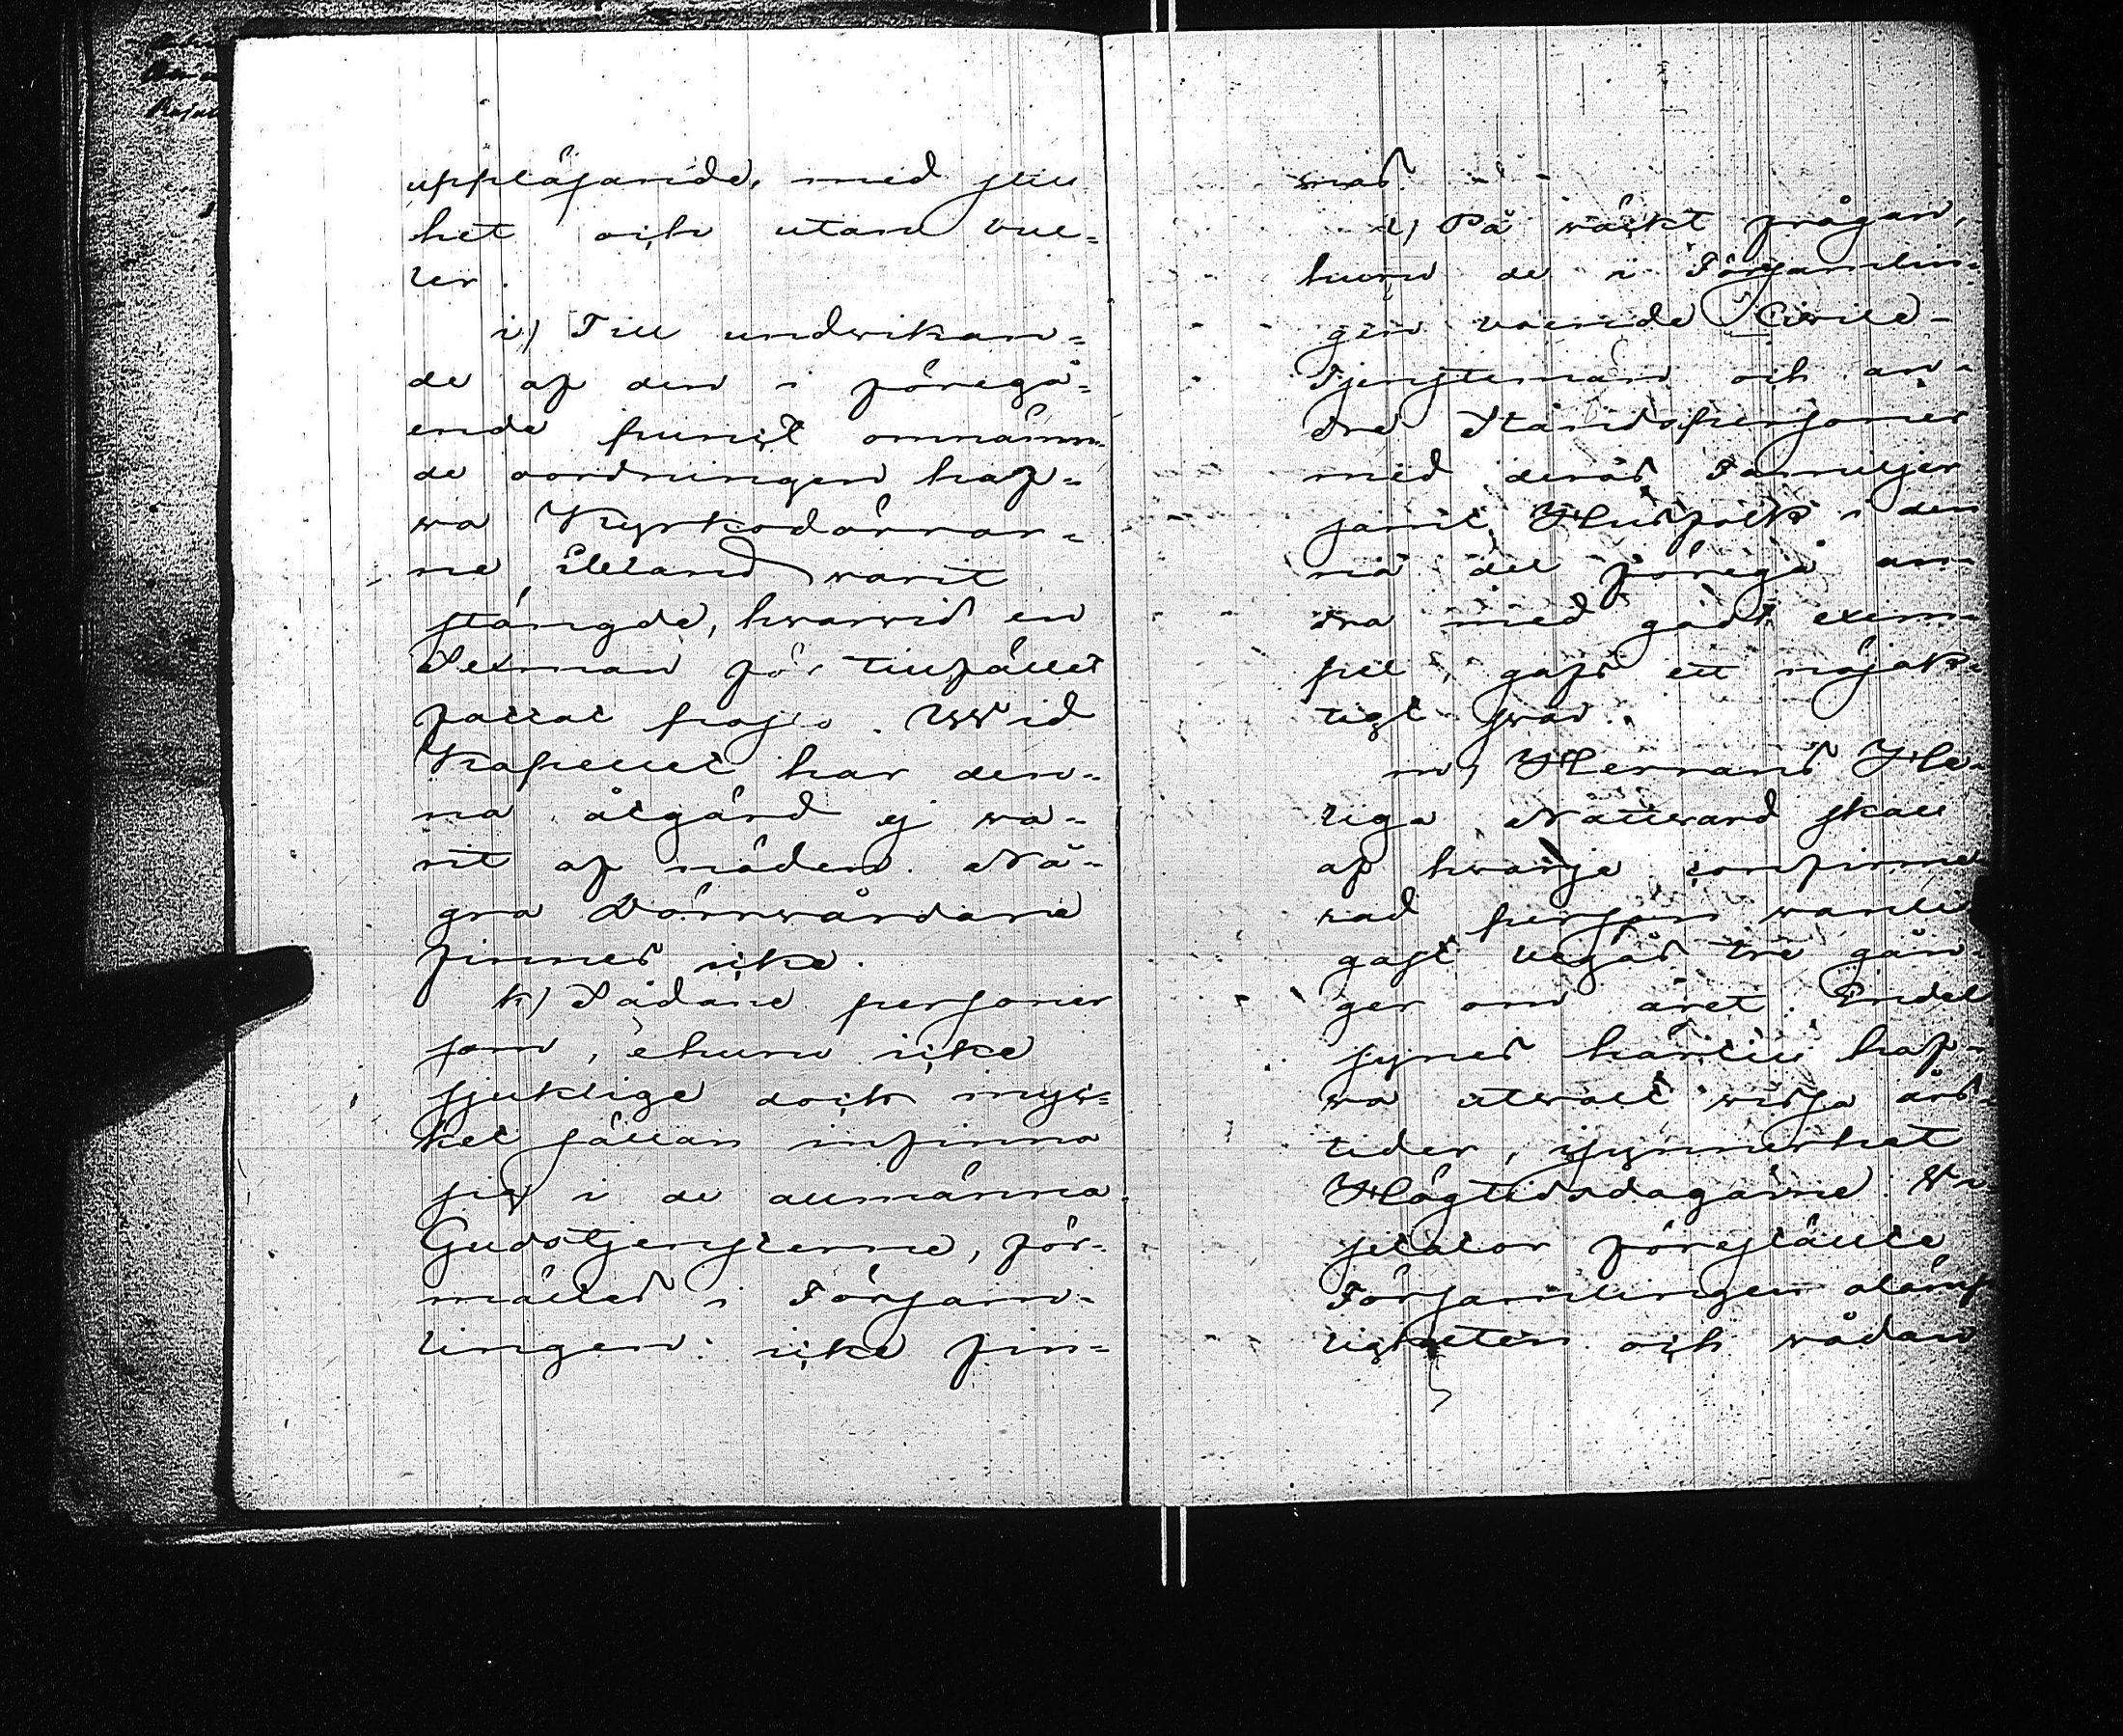 uppläsande, med still
het och utan bul=
ler.
i) Till undwikan=
de af den i föregå=
ende punct omnämn=
de oordningen haf=
wa Kyrkodörrar=
ne ibland warit
stängde, hwarwid en
Sexman för tillfället
fattat posto. Wid
Kapellet har den=
na åtgärd ej wa=
rit af nöden. Nå=
gra Dörrwårdare
finnes icke.
k) Sådane personer
som, ehuru icke
sjuklige doch myc=
ket sällan infinna
sig i de allmänna
Gudstjensterne, för=
mältes i Försam=
lingen icke fin=
nas.
l) På väckt frågan,
huru de i Församlin=
gen boende Civile=
Tjenstemän och an=
dre Ståndspersoner
med deras Familjer
samt Husfolk i den=
na del föregå an=
dra med godt exem=
pel, gafs ett nöjak=
tigt swar.
m) Herrans He=
liga Nattward skall
af hwarje confirme=
rad person wanli
gast begås tre gån=
ger om året. Endel
synes härtill haf=
wa utwalt wissa års=
tider, isynnerhet
Högtidsdagarne. Vi=
sitator föreställte
Församlingen olämp
ligheten och wådan